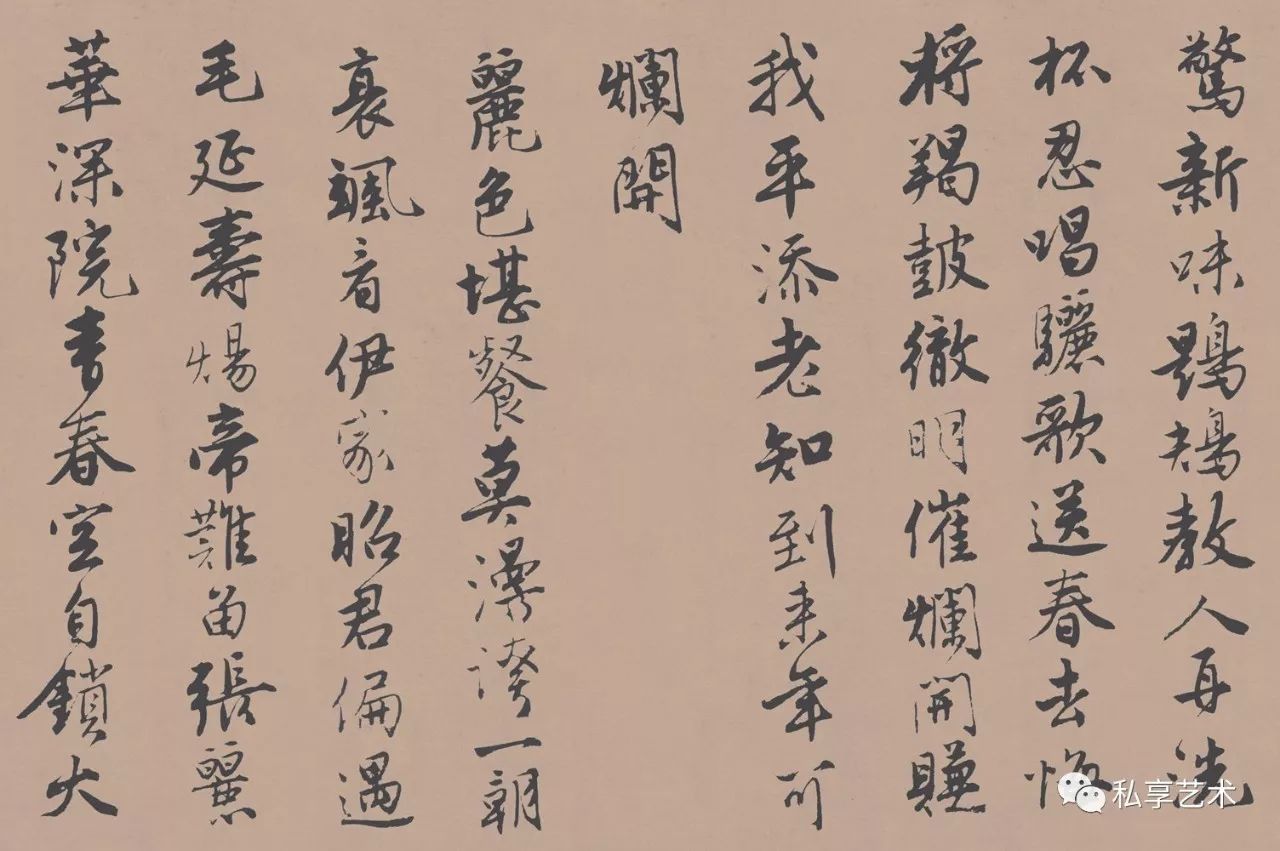 驚新味鶗鴂教人再洗
杯忍唱驪歌送春去悔
將羯鼓徹明催爛開賺
我平添老知到来年可
爛開
麗色堪餐莫漫誇一朝
衰颯看伊家昭君偏遇
毛延壽煬帝難留張麗
華深院青春空自鎖大
私享艺术